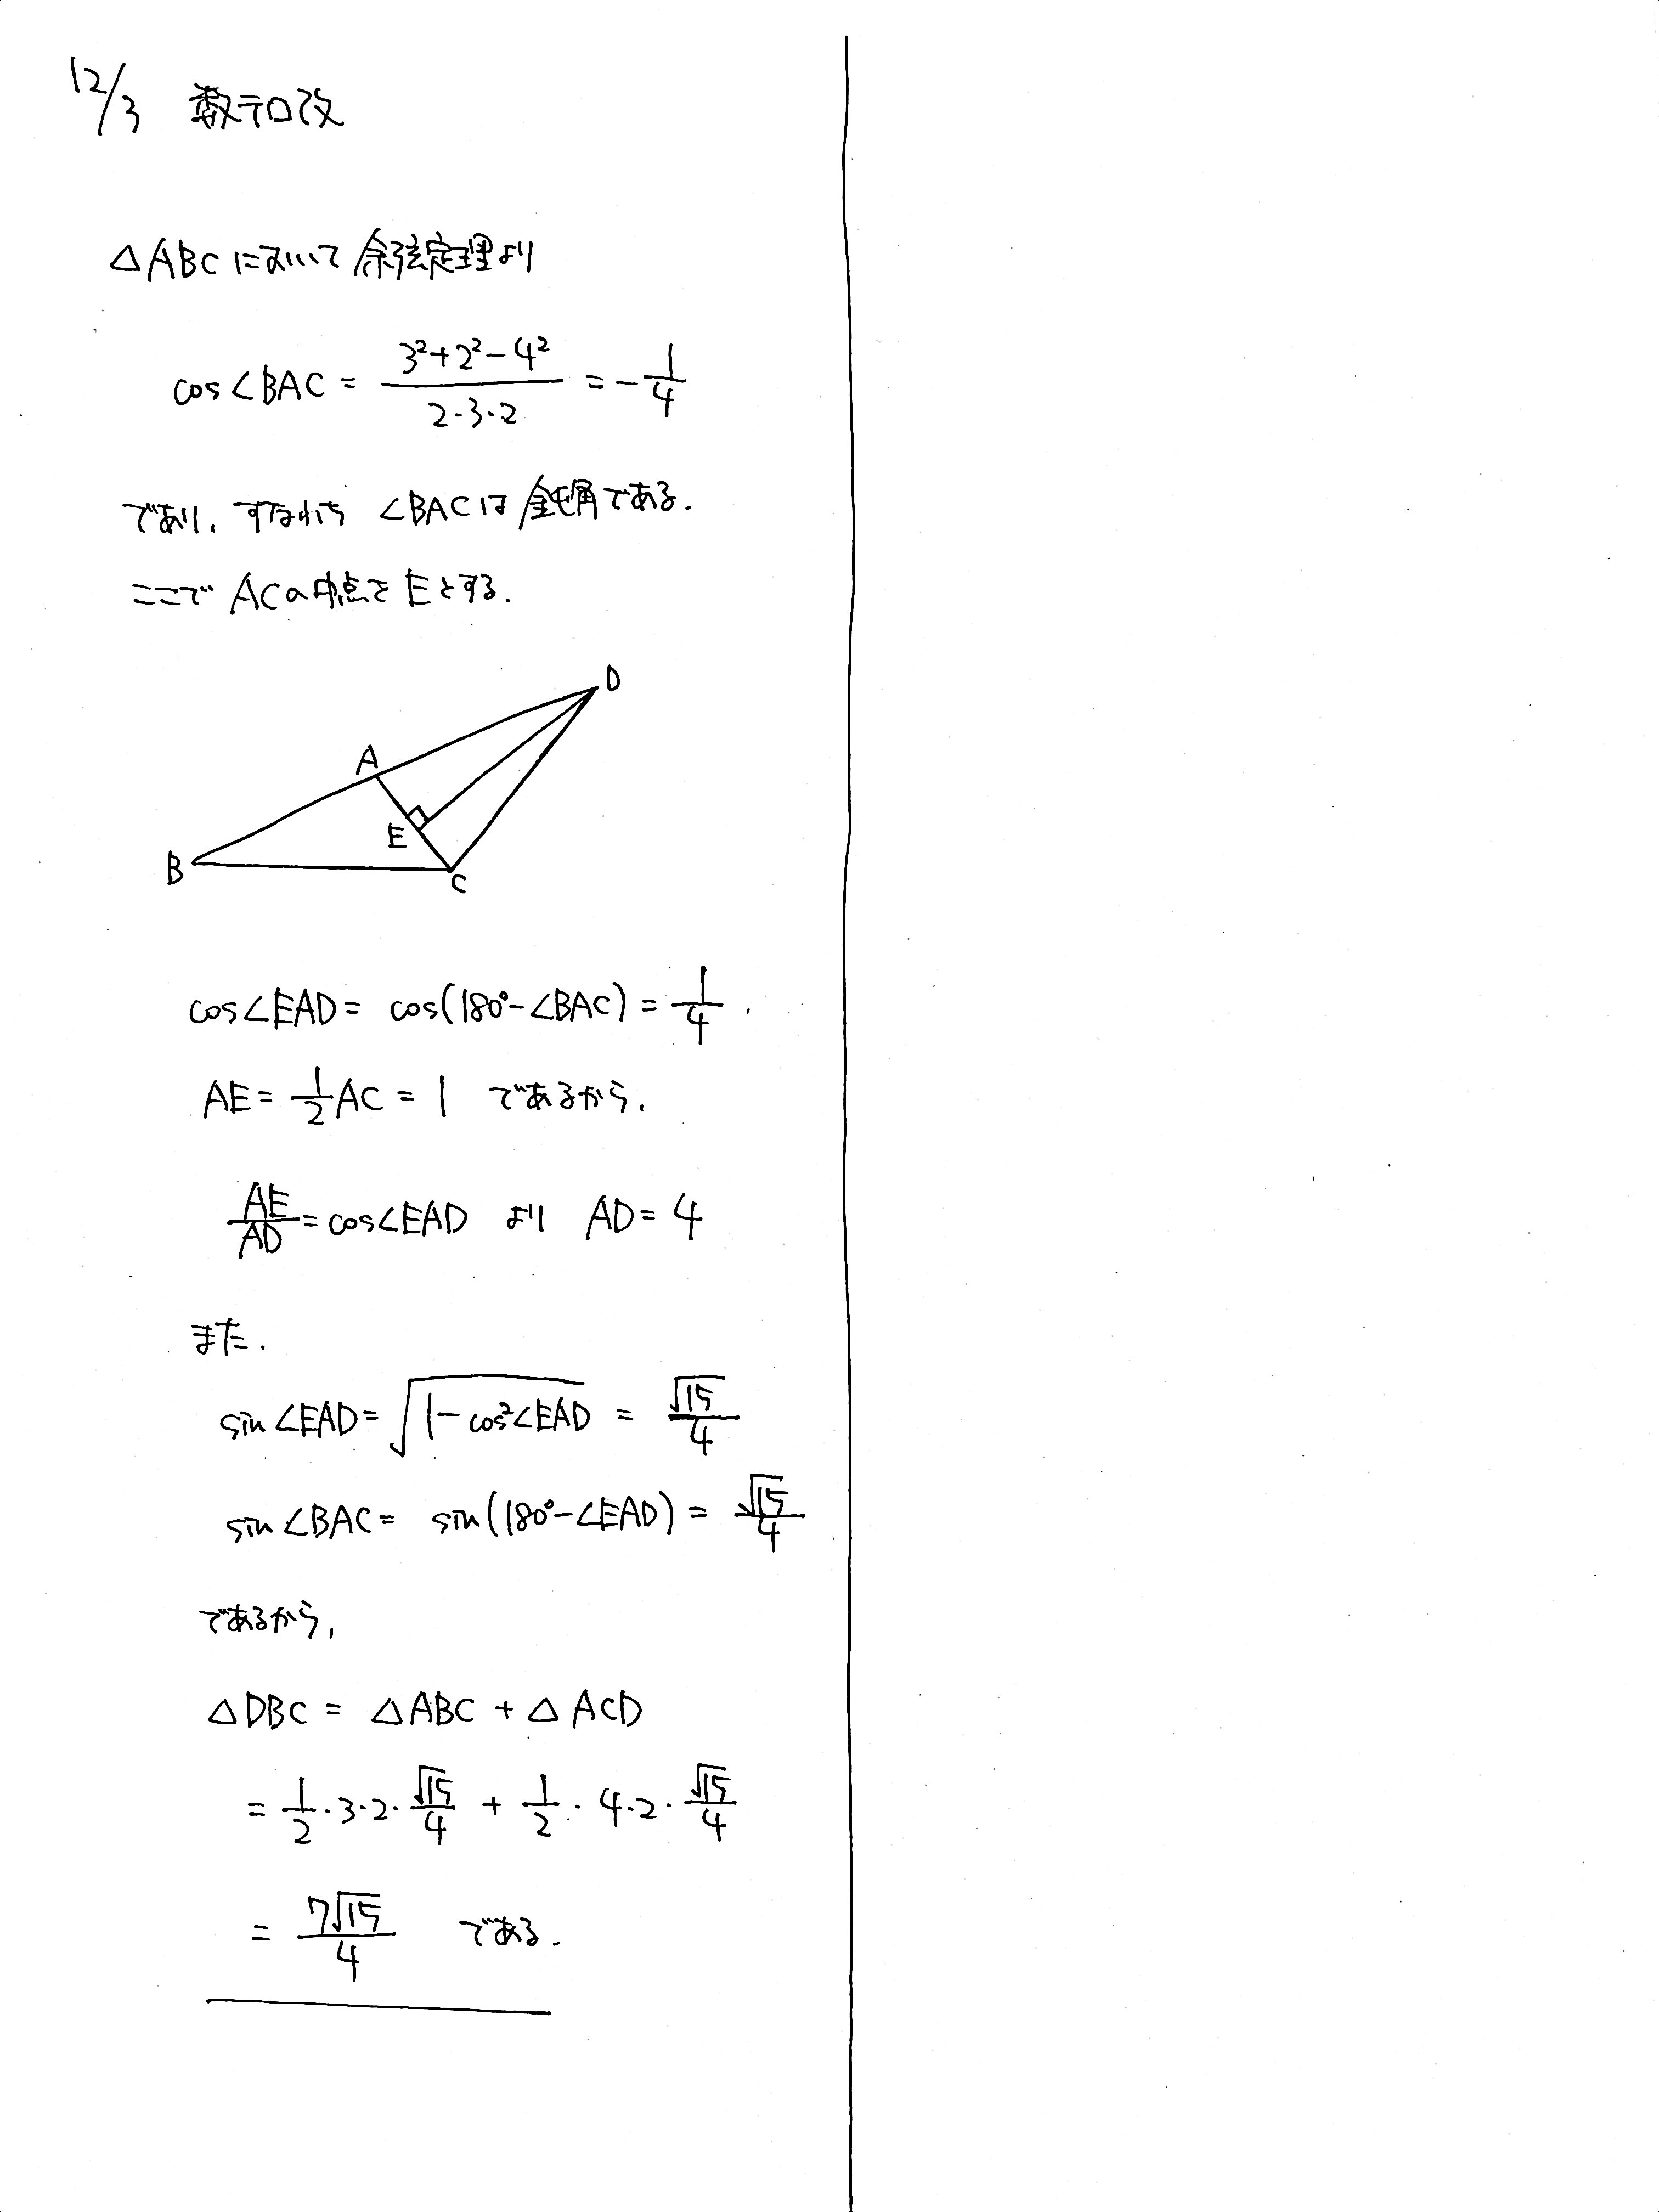 12/3 数テロ改
△ABCにおいて余弦定理より
cos∠BAC = \frac{3²+2²-4²}{2・3・2} = -\frac{1}{4}
であり、すなわち ∠BACは鈍角である.
ここで ACの中点を Eとする.
D
A
E
B
C
cos∠EAD = cos(180°-∠BAC) = \frac{1}{4}.
AE = \frac{1}{2}AC = 1 であるから、
\frac{AE}{AD} = cos∠EAD より AD = 4
また.
sin∠EAD = \sqrt{1-cos²∠EAD} = \frac{\sqrt{15}}{4}
sin∠BAC = sin(180°-∠EAD) = \frac{\sqrt{15}}{4}
であるから、
△DBC = △ABC + △ACD
= \frac{1}{2}・3・2・\frac{\sqrt{15}}{4} + \frac{1}{2}・4・2・\frac{\sqrt{15}}{4}
= \frac{7\sqrt{15}}{4} である.